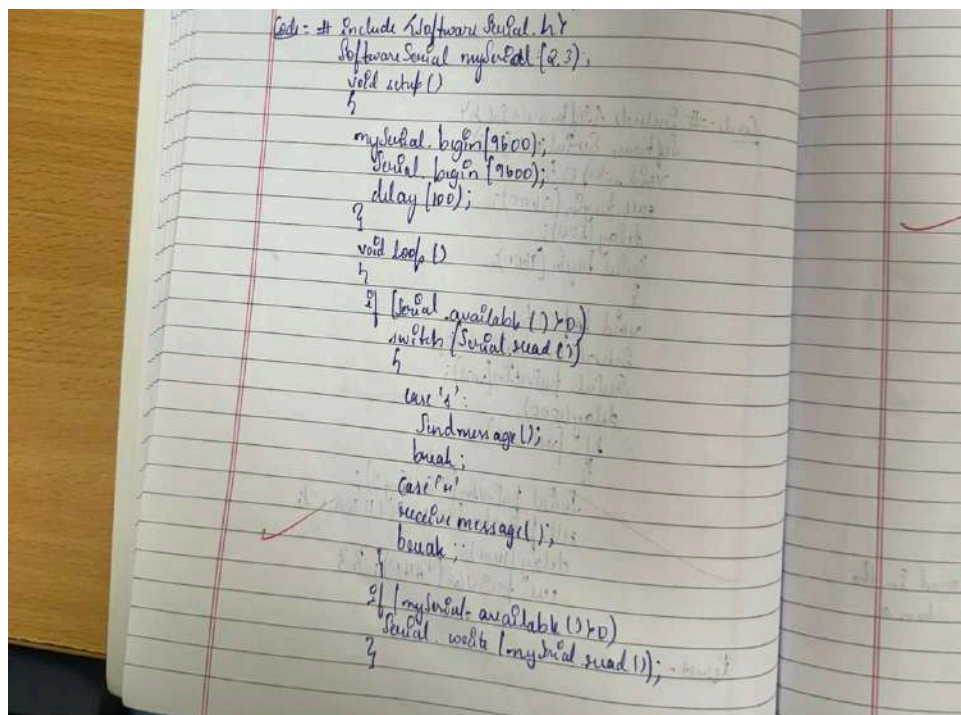 Code:- # include <Software Serial.h>
Software Serial mySerial (2,3);
void setup ()
{
mySerial.begin(9600);
Serial.begin (9600);
delay (100);
}
void loop ()
{
if (Serial.available () >0)
switch (Serial.read ())
{
case 's':
Sendmessage();
break;
case 'r'
receive message();
break;
}
if (mySerial.available () >0)
Serial.write (mySerial.read ());
}